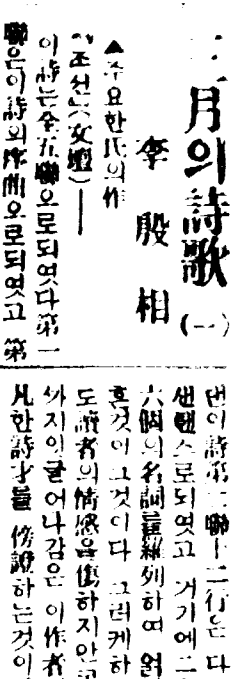 二月의詩歌(一)
李殷相
▲주요한氏의作
(조선六女壇)——
이詩는全五聯으로되엿다第一
聯은이詩의序曲으로되엿고 第
댄이詩第二聯十二行은 다
센텐스로되엿고 거기에二
六個의名詞를羅列하여 얽
흔것이그것이다 그러케하
도讀者의情感을傷하지안코
까지이끌어나감은 이作者
凡한詩才를 傍證하는것이